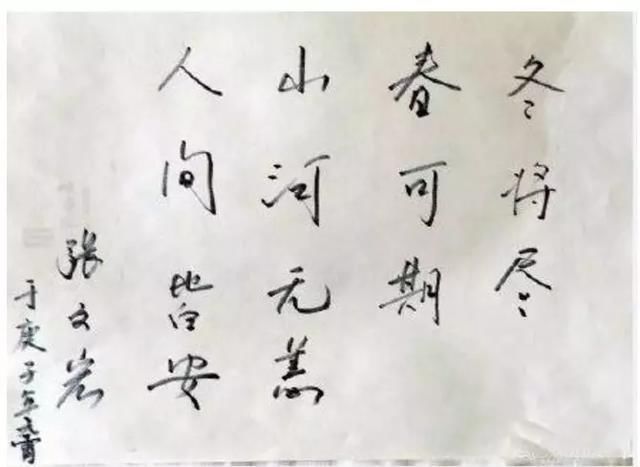 冬将尽
春可期
山河无恙
人间皆安
张文
于庚子年元宵